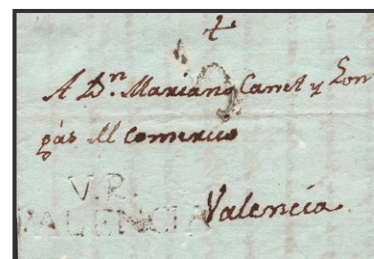 A Dn. Mariano Canet y Lon
gás del Comercio
V.R.
VALENCIA Valencia